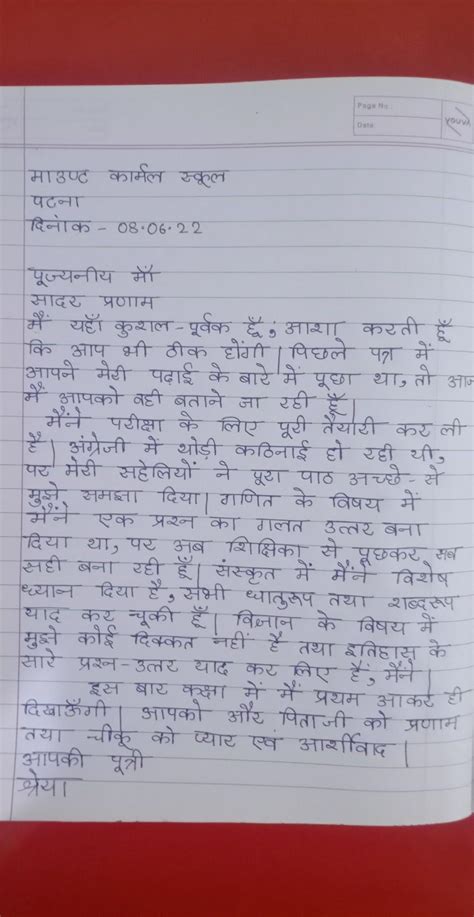 Page No.:
Date
youva
माउण्ट कार्मल स्कूल
पटना
दिनांक - 08.06.22
पूज्यनीय माँ
सादर प्रणाम
मैं यहाँ कुशल-पूर्वक हूँ, आशा करती हूँ
कि आप भी ठीक होंगी | पिछले पत्र में
आपने मेरी पढ़ाई के बारे में पूछा था, तो आज
मैं आपको वही बताने जा रही हूँ |
मैंने परीक्षा के लिए पूरी तैयारी कर ली
है | अंग्रेजी में थोड़ी कठिनाई हो रही थी,
पर मेरी सहेलियों ने पूरा पाठ अच्छे-से
मुझे समझा दिया | गणित के विषय में
मैंने एक प्रश्न का गलत उत्तर बना
दिया था, पर अब शिक्षिका से पूछकर सब
सही बना रही हूँ | संस्कृत में मैंने विशेष
ध्यान दिया है, सभी धातुरूप तथा शब्दरूप
याद कर चूकी हूँ | विज्ञान के विषय में
मुझे कोई दिक्कत नहीं है तथा इतिहास के
सारे प्रश्न-उत्तर याद कर लिए हैं, मैंने |
इस बार कक्षा में मैं प्रथम आकर ही
दिखाऊँगी | आपको और पिताजी को प्रणाम
तथा चीकू को प्यार एवं आर्शीवाद |
आपकी पूत्री
श्रेया |